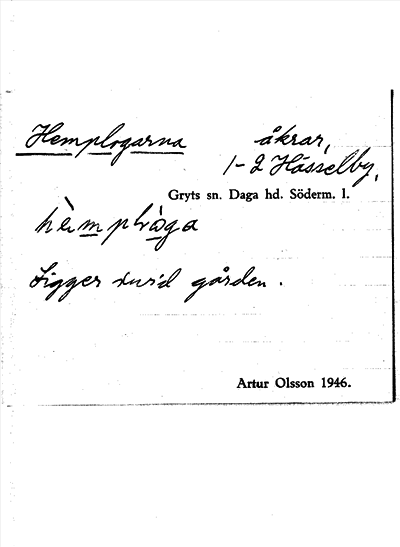 Hemplogarna åkrar,
1-2 Hässelby,
Gryts sn. Daga hd. Söderm. l.
hèmplòga
Ligger invid gården.
Artur Olsson 1946.